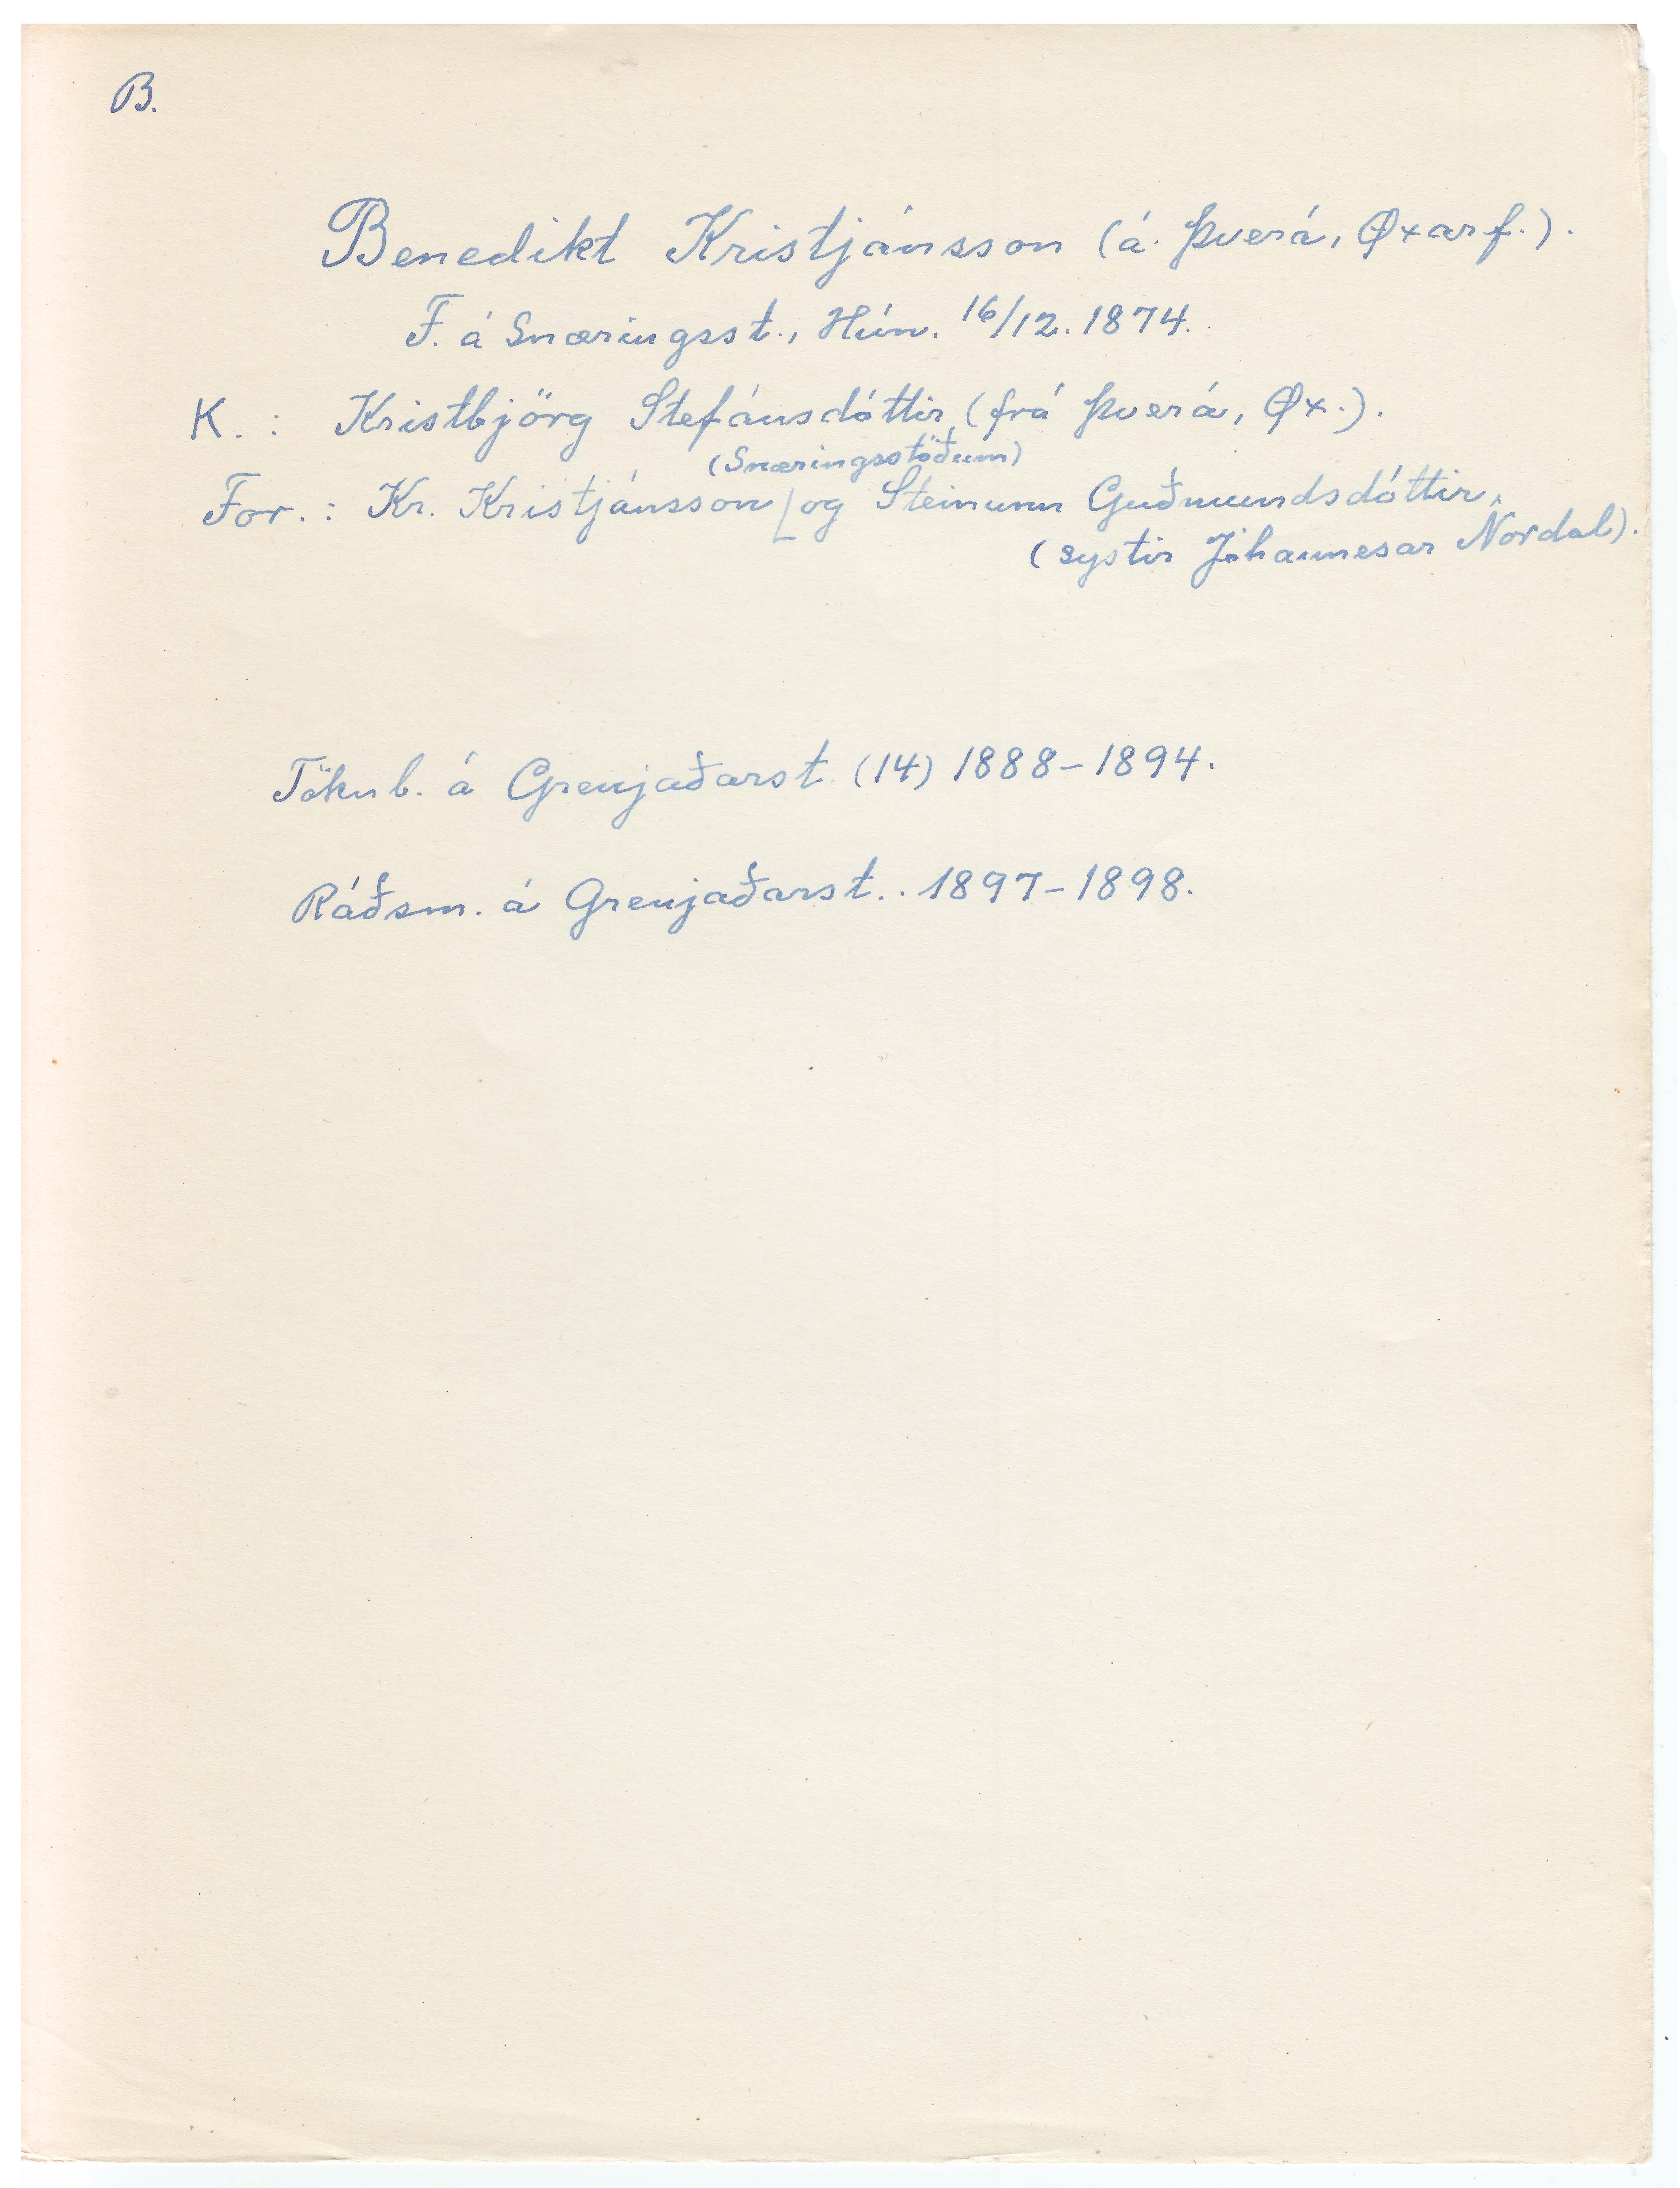 B.
Benedikt Kristjánsson (á Þverá, Øxarf.).
F. á Snæringsst., Hún. 16/12. 1874.
K. : Kristbjörg Stefánsdóttir (frá Þverá, Øx.).
(Snæringsstöðum)
For. : Kr. Kristjánsson og Steinunn Guðmundsdóttir,
(systir Jóhannesar Nordal).
Tökub. á Grenjaðarst. (14) 1888-1894.
Ráðsm. á Grenjaðarst. . 1897-1898.